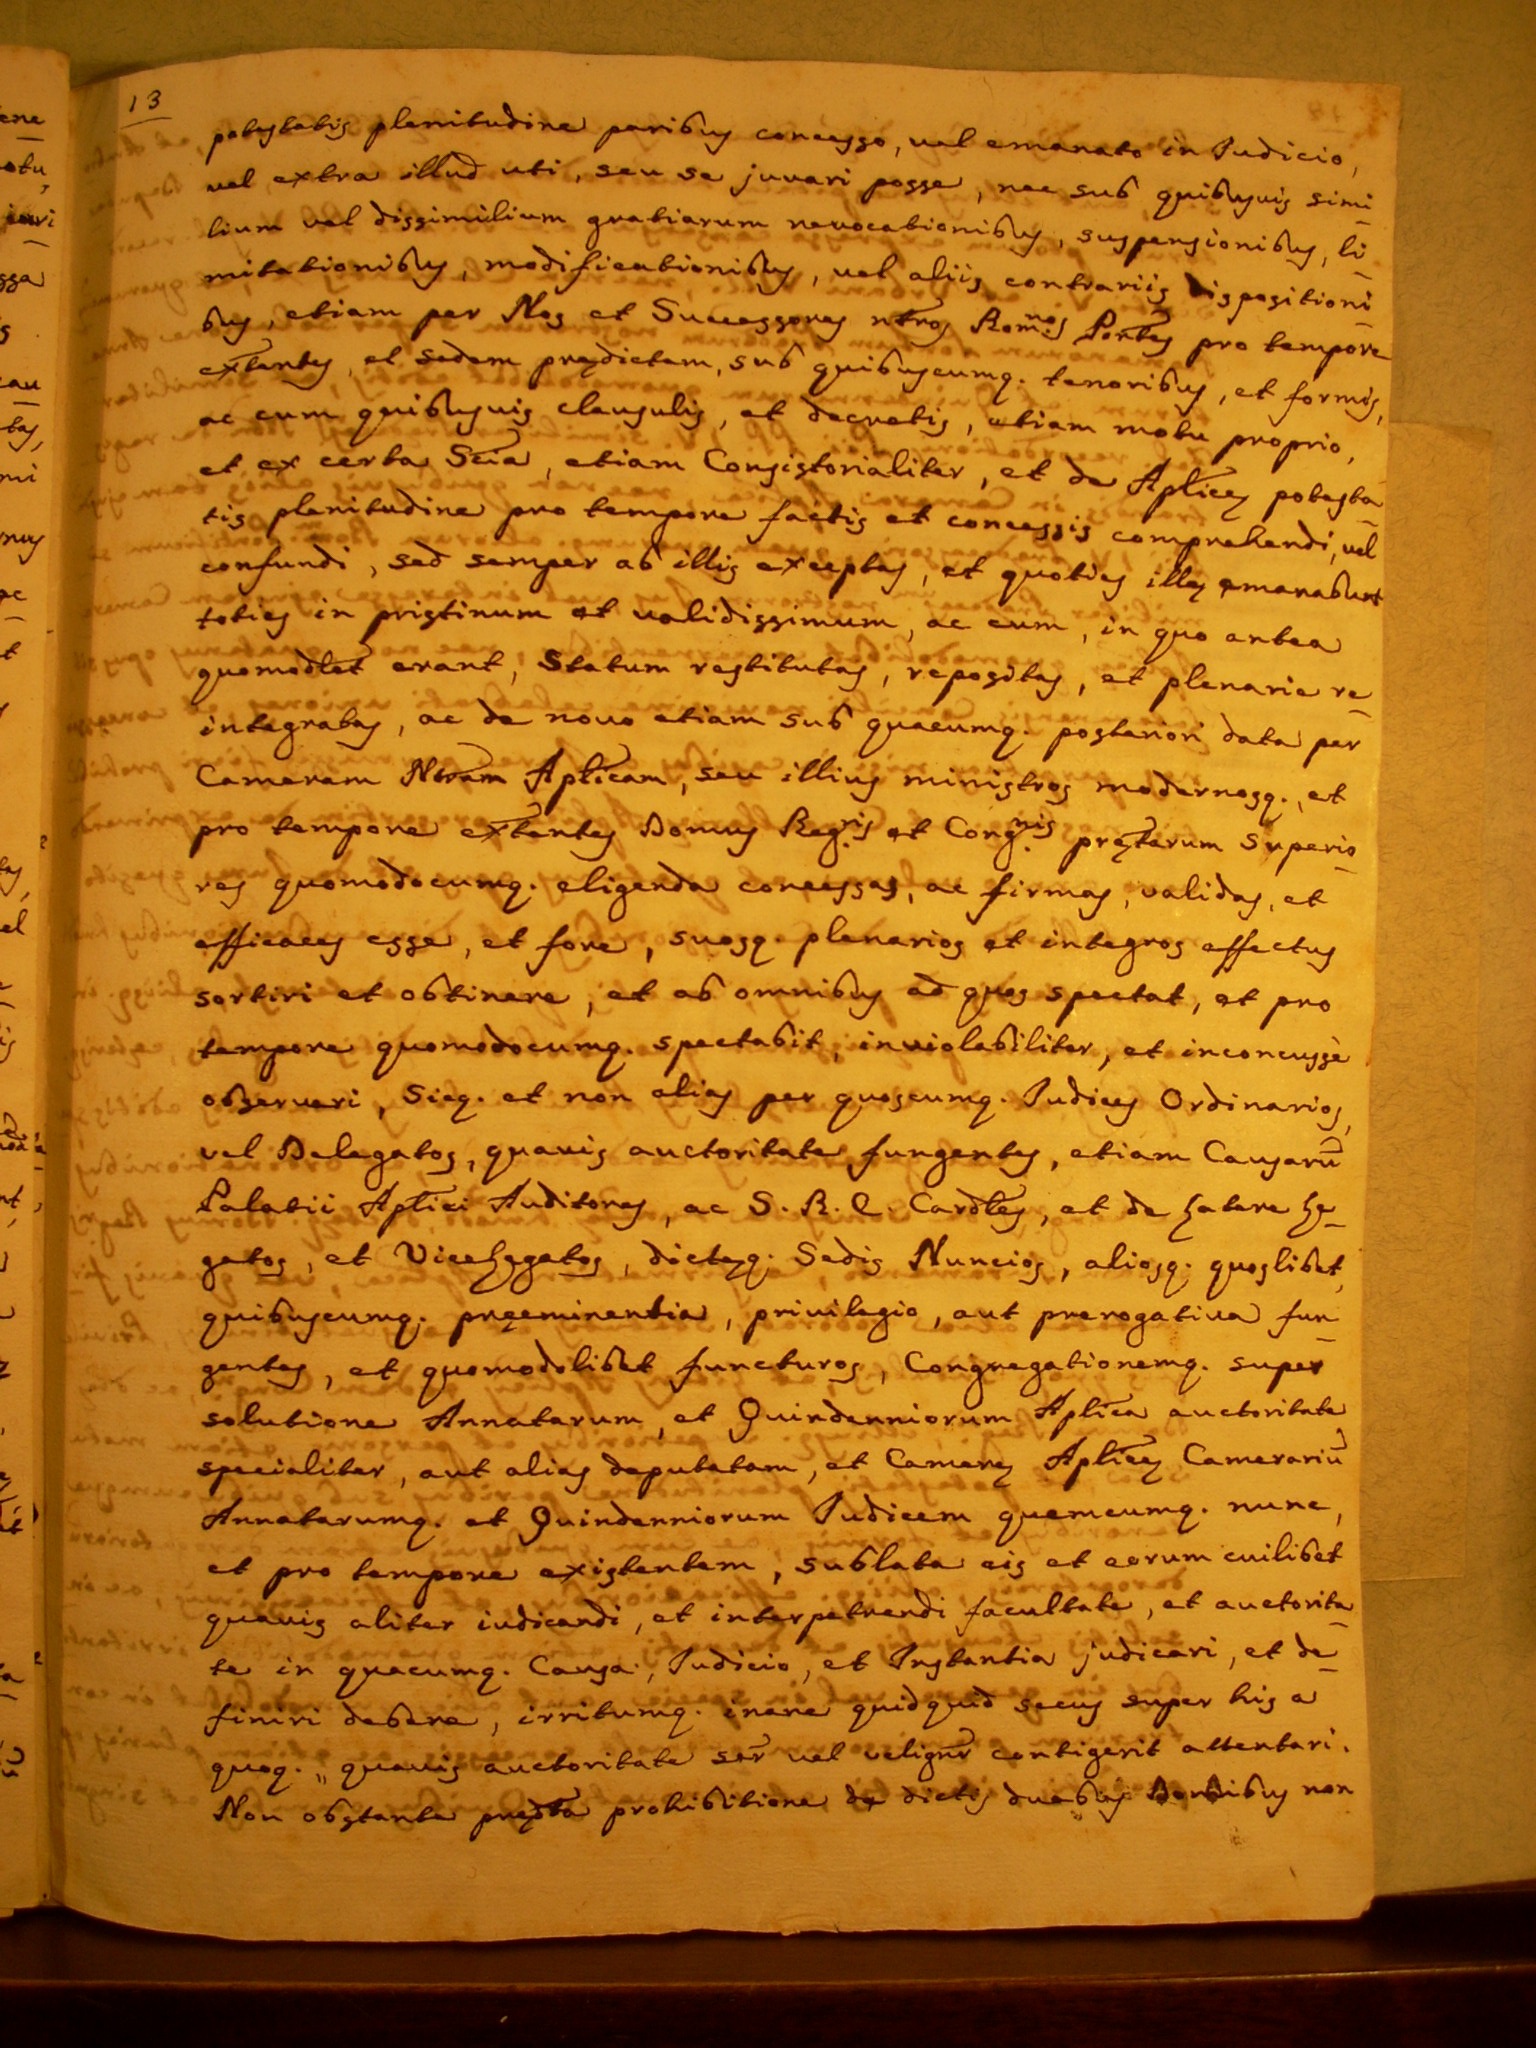 13
potestatis plenitudine paribus concesso, vel emanato in Judicio,
vel extra illud uti, seu se juvari posse, nec sub quibusvis simi
lium vel dissimilium gratiarum revocationibus, suspensionibus, li
mitationibus, modificationibus, vel aliis contrariis dispositioni
bus, etiam per Nos et Successores ntros Romnos Pontes pro tempore
extantes, et sedem prędictam, sub quibuscumq. tenoribus, et formis,
ac cum quibusvis clausulis, et decretis, etiam motu proprio,
et ex certa Scia, etiam Consistorialiter, et de Aplicę potesta
tis plenitudine pro tempore factis et concessis comprehendi, vel
confundi, sed semper ab illis exceptas, et quoties illę emanabunt
toties in pristinum et validissimum, ac eum, in quo antea
quomodlet erant, Statum restitutas, repositas, et plenarie re
integratas, ac de novo etiam sub quacumq. posteriori data per
Cameram Ntram Aplicam, seu illius ministros modernosq., et
pro tempore extantes Domus Regris et Congnis prętarum Superio
res quomodocumq. eligenda concessas, ac firmas, validas, et
efficaces esse, et fore, suosq. plenarios et integros effectus
sortiri et obtinere, et ab omnibus ad quos spectat, et pro
tempore quomodocumq. spectabit, inviolabiliter, et inconcussè
observari, Sicq. et non alias per quoscumq. Judices Ordinarios,
vel Delegatos, quavis auctoritate fungentes, etiam Causarū
Palatii Aplici Auditores, ac S. R. E. Cardles, et de Latere Le
gatos, et ViceLegatos, dictęq. Sedis Nuncios, aliosq. quoslibet,
quibuscumq. pręeminentia, privilegio, aut prerogativa fun
gentes, et quomodolibet functuros, Congregationemq. super
solutione Annatarum, et Quindenniorum Aplica auctoritate
specialiter, aut alias deputatam, et Camerę Aplicę Camerariū
Annatarumq. et Quindenniorum Judicem quemcumq. nunc,
et pro tempore existentem, sublata eis et eorum cuilibet
quavis aliter iudicandi, et interpetrendi facultate, et auctorita
te in quacumq. Causa, Judicio, et Instantia judicari, et de
finiri debere, irritumq. inane quidquid secus super his a
quoq. „ quavis auctoritate scr vel velignr contigerit attentari.
Non obstante prędta prohibitione de dictis duabus Domibus non